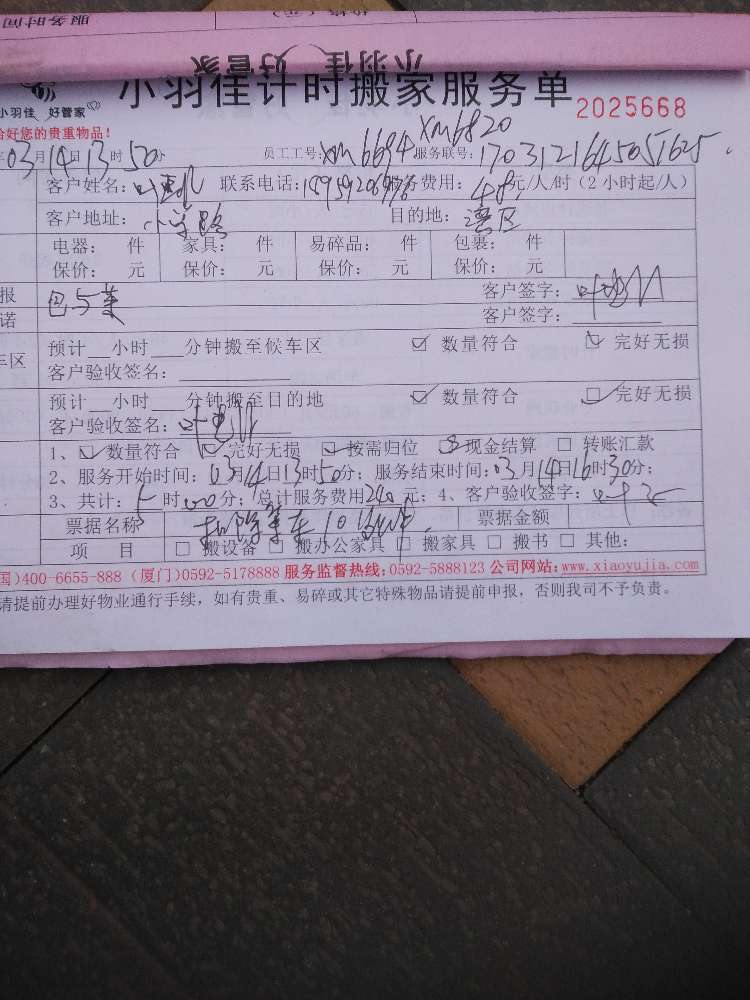 服务时间
小羽佳 好管家
小羽佳计时搬家服务单 2025668
小羽佳 好管家
好您的贵重物品!
03月14日13时50分 员工工号:xm6694 xm6820 服务联号:1703121645051625
客户姓名:叶 联系电话: 费用:48元/人/时(2小时起/人)
客户地址: 路 目的地:湾区
电器: 件 家具: 件 易碎品: 件 包裹: 件
保价: 元 保价: 元 保价: 元 保价: 元
报 客户签字:
诺 客户签字:
车区 预计__小时___分钟搬至候车区 ☑ 数量符合 ☑ 完好无损
客户验收签名:
预计__小时___分钟搬至目的地 ☑ 数量符合 ☑ 完好无损
客户验收签名:
1、☑ 数量符合 ☑ 完好无损 ☑ 按需归位 ☑ 现金结算 □ 转账汇款
2、服务开始时间:03月14日13时50分;服务结束时间:03月14日16时30分;
3、共计: 时00分;总计服务费用240元;4、客户验收签字:
票据名称 票据金额
项 目 □ 搬设备 □ 搬办公家具 □ 搬家具 □ 搬书 □ 其他:
国)400-6655-888 (厦门)0592-5178888 服务监督热线:0592-5888123 公司网站:www.xiaoyujia.com
请提前办理好物业通行手续,如有贵重、易碎或其它特殊物品请提前申报,否则我司不予负责。